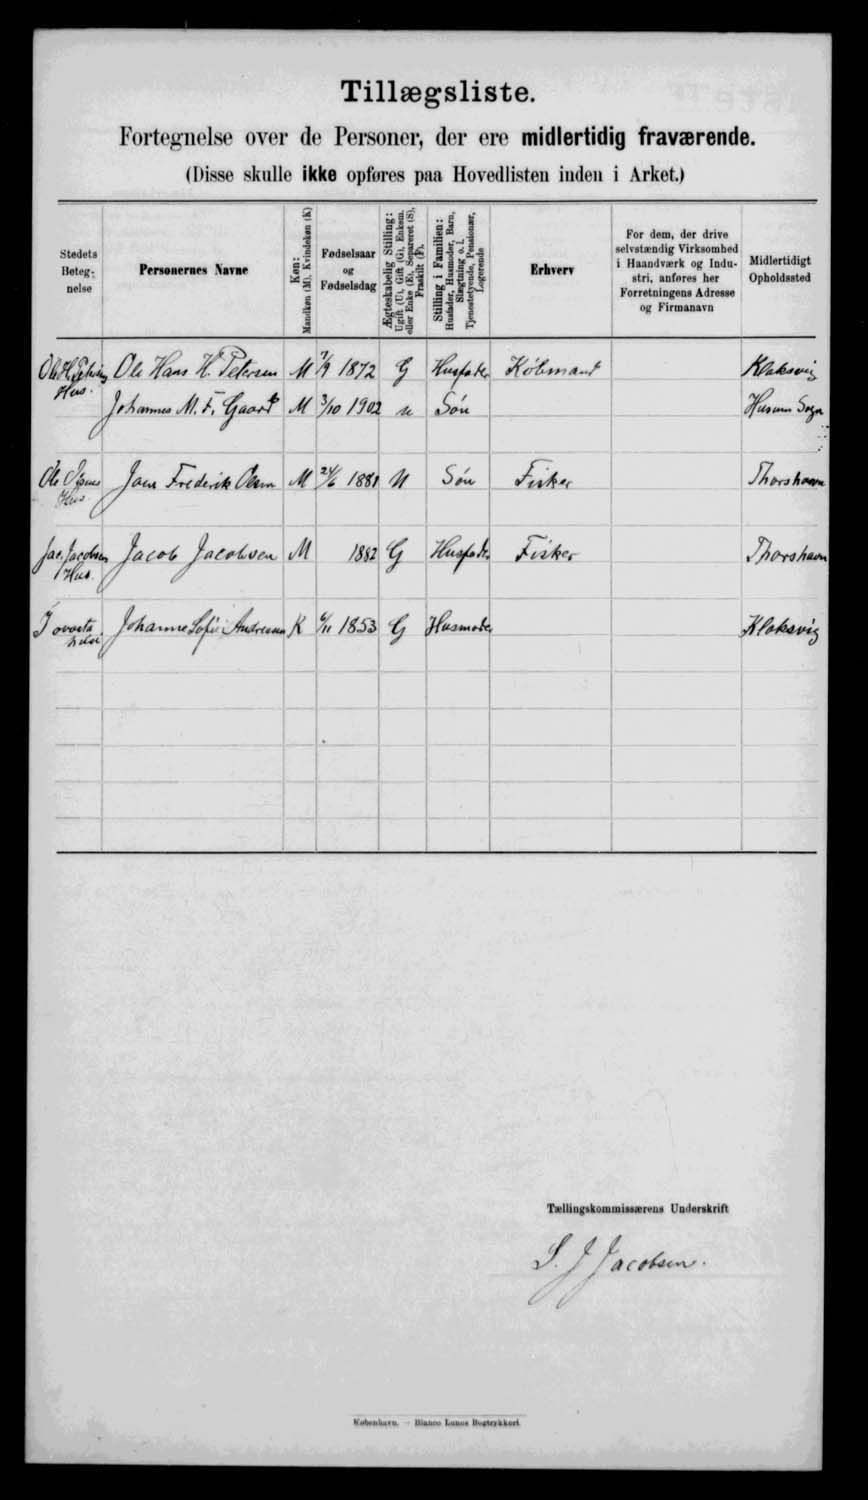 Tillægsliste.
Fortegnelse over de Personer, der ere midlertidig fraværende.
(Disse skulle ikke opføres paa Hovedlisten inden i Arket.)
Stedets Beteg-nelse
Personernes Navne
Køn: Mandkøn (M), Kvindekøn (K)
Fødselsaar og Fødselsdag
Ægteskabelig Stilling: Ugift (U), Gift (G), Enkem. eller Enke (E), Separeret (S), Fraskilt (F).
Stilling i Familien: Husfader, Husmoder, Barn, Slægtning o. l. Tjenestetyende, Pensionær, Logerende
Erhverv
For dem, der drive selvstændig Virksomhed i Haandværk og Indu-stri, anføres her Forretningens Adresse og Firmanavn
Midlertidigt Opholdssted
Hus. Ole Hans H. Petersen M 7/9 1872 G Husfader Købmand Klaksvig
Johannes M. F. Gaard M 3/10 1902 u Søn Husum Sogn
Ole Hus. Frederik M 24/6 1881 U Søn Fisker Thorshavn
Jac. Jacobsen Hus. Jacob Jacobsen M 1882 G Husfader Fisker Thorshavn
Johanne Sofie Andreasen K 6/11 1853 G Husmoder Klaksvig
Tællingskommissærens Underskrift
S. J Jacobsen.
København. — Bianco Lunos Bogtrykkeri.